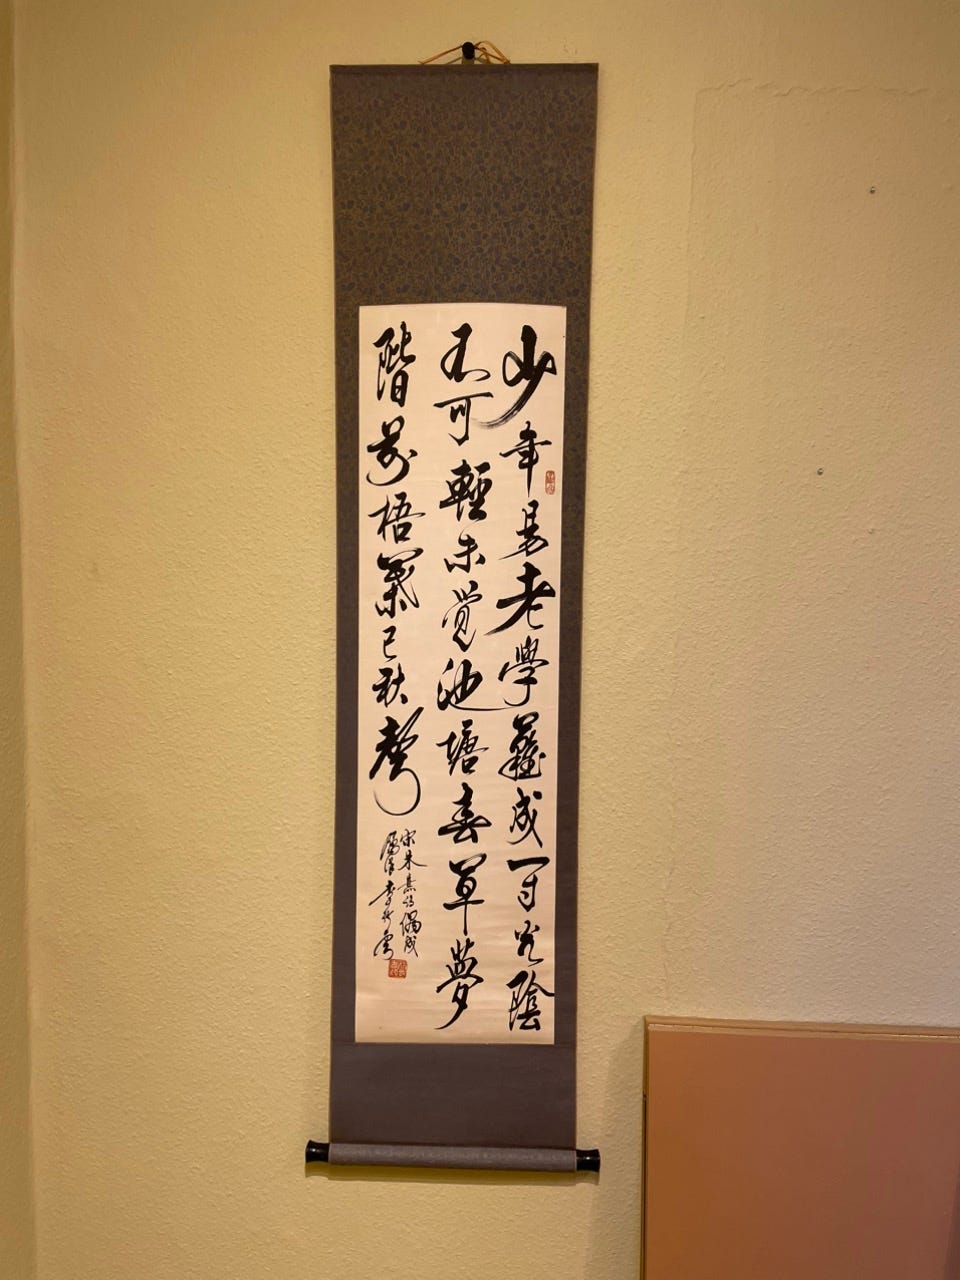 少年易老學難成一寸光陰
不可輕未覺池塘春草夢
階前梧葉已秋聲
宋朱熹詩偶成